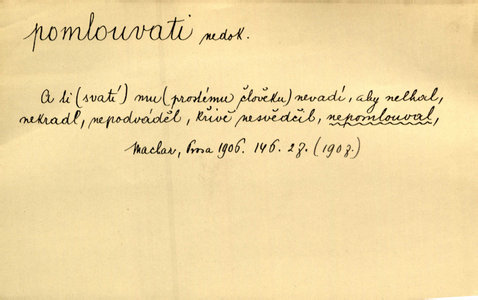 pomlouvati nedok.
A ti (svatí) mu (prostému člověku) nevadí, aby nelhal,
nekradl, nepodváděl, křivě nesvědčil, nepomlouval,
Maclar, Prosa 1906. 146. 27. (1907.)